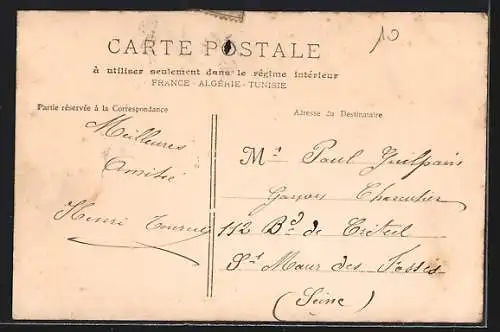 10
CARTE POSTALE
à utiliser seulement dans le régime intérieur
FRANCE - ALGÉRIE - TUNISIE
Partie réservée à la Correspondance
Adresse du Destinataire
Meilleures
Amitié
Henri
Mr Paul Guilpain
Garçon Charcutier
112 Bd de Créteil
St Maur des Fossés
(Seine)